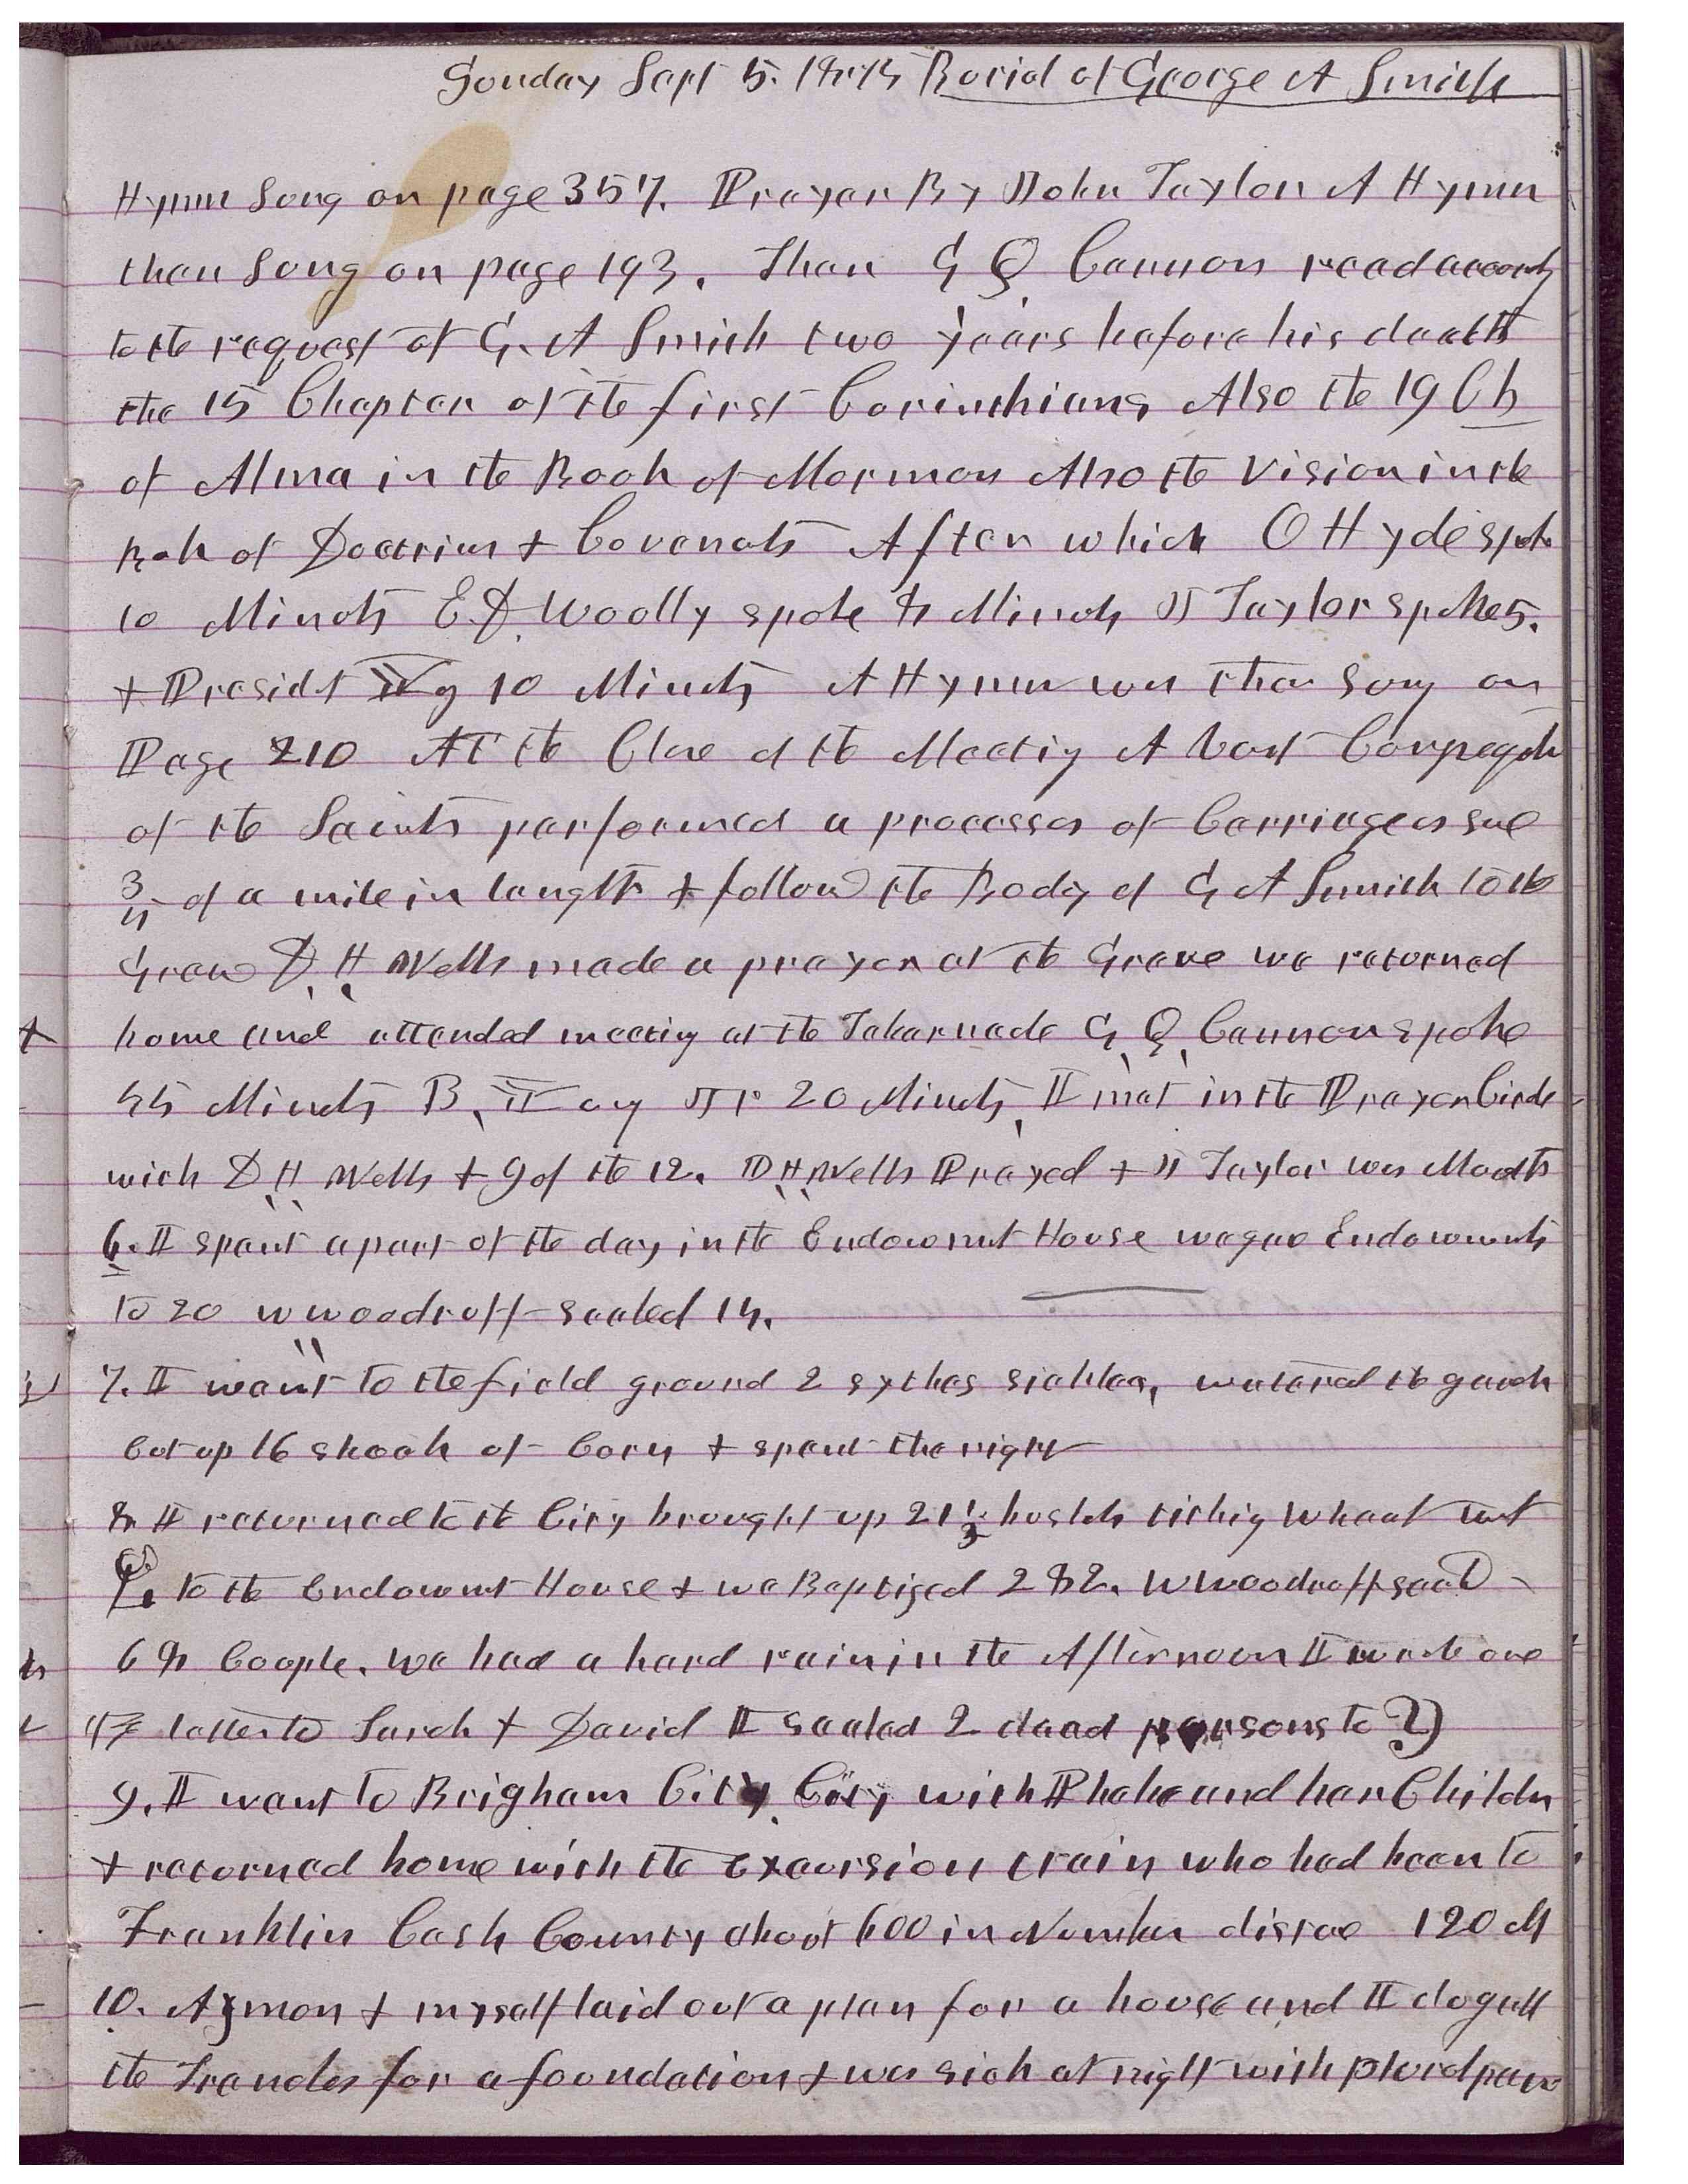 Sunday Sept 5. 1875 Burial of George A Smith
Hymn Sung on page 357. Prayer By John Taylor A Hymn
then Sung on page 193. Then G Q Cannon read
to the request of G. A Smith two years before his death
the 15 Chapter of the first Corinthians Also the 19 Ch
of Alma in the Book of Mormon Also the Vision in the
Book of Doctrins & Covenats After which O Hyde spoke
10 Minuts E. D. Woolly spoke 8 Minuts J Taylor spoke 5.
& Presidt Yg 10 Minuts A Hymn was then Sung on
Page 210 At the Close of the Meeting A Vast Congregatn
of the Saints performed a procession of Carriages
3/4 of a mile in length & followed the Body of G A Smith to the
Grave D. H. Wells made a prayer at the Grave we returned
home and attended meeting at the Tabarnacle G. Q. Cannon spoke
45 Minuts B, Yog Jr 20 Minuts, I met in the Prayer Circle
with D H Wells & 9 of the 12. D H Wells Prayed & J Taylor was Mouth
6. I spent a part of the day in the Endowmt House we gave Endowments
to 20 W Woodruff sealed 14.
7. I went to the field ground 2 sythes sickles, watered the garden
Cut up 16 shook of Corn & spent the night
8 I returned to the City brought up 21 1/2 bushels tithig Wheat went
to the Endowmt House & we Baptized 282. W Woodruff seald
68 Couple. we had a hard rain in the Afternoon I wrote one
letter to Sarah & David I sealed 2 dead persons to ?)
9. I went to Brigham City City with Phebe and her Childn
& returned home with the Excursion train who had been to
Franklin Cash County about 600 in Number distae 120 M
10. Azmon & myself laid out a plan for a house and I dug all
the Trenches for a foundation & was sick at night with